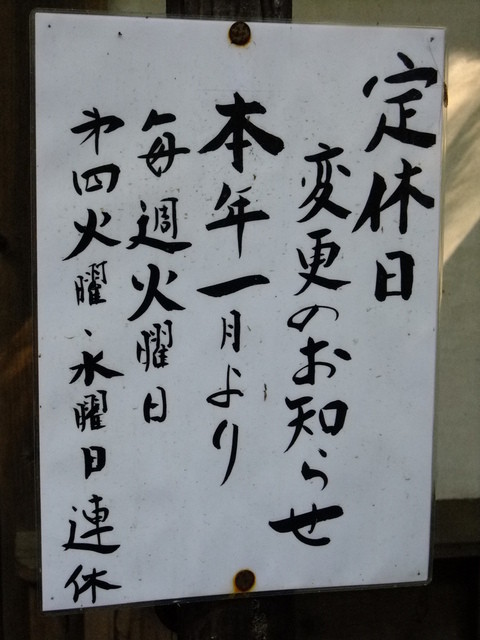 定休日
変更のお知らせ
本年一月より
毎週火曜日
才四火曜、水曜日連休